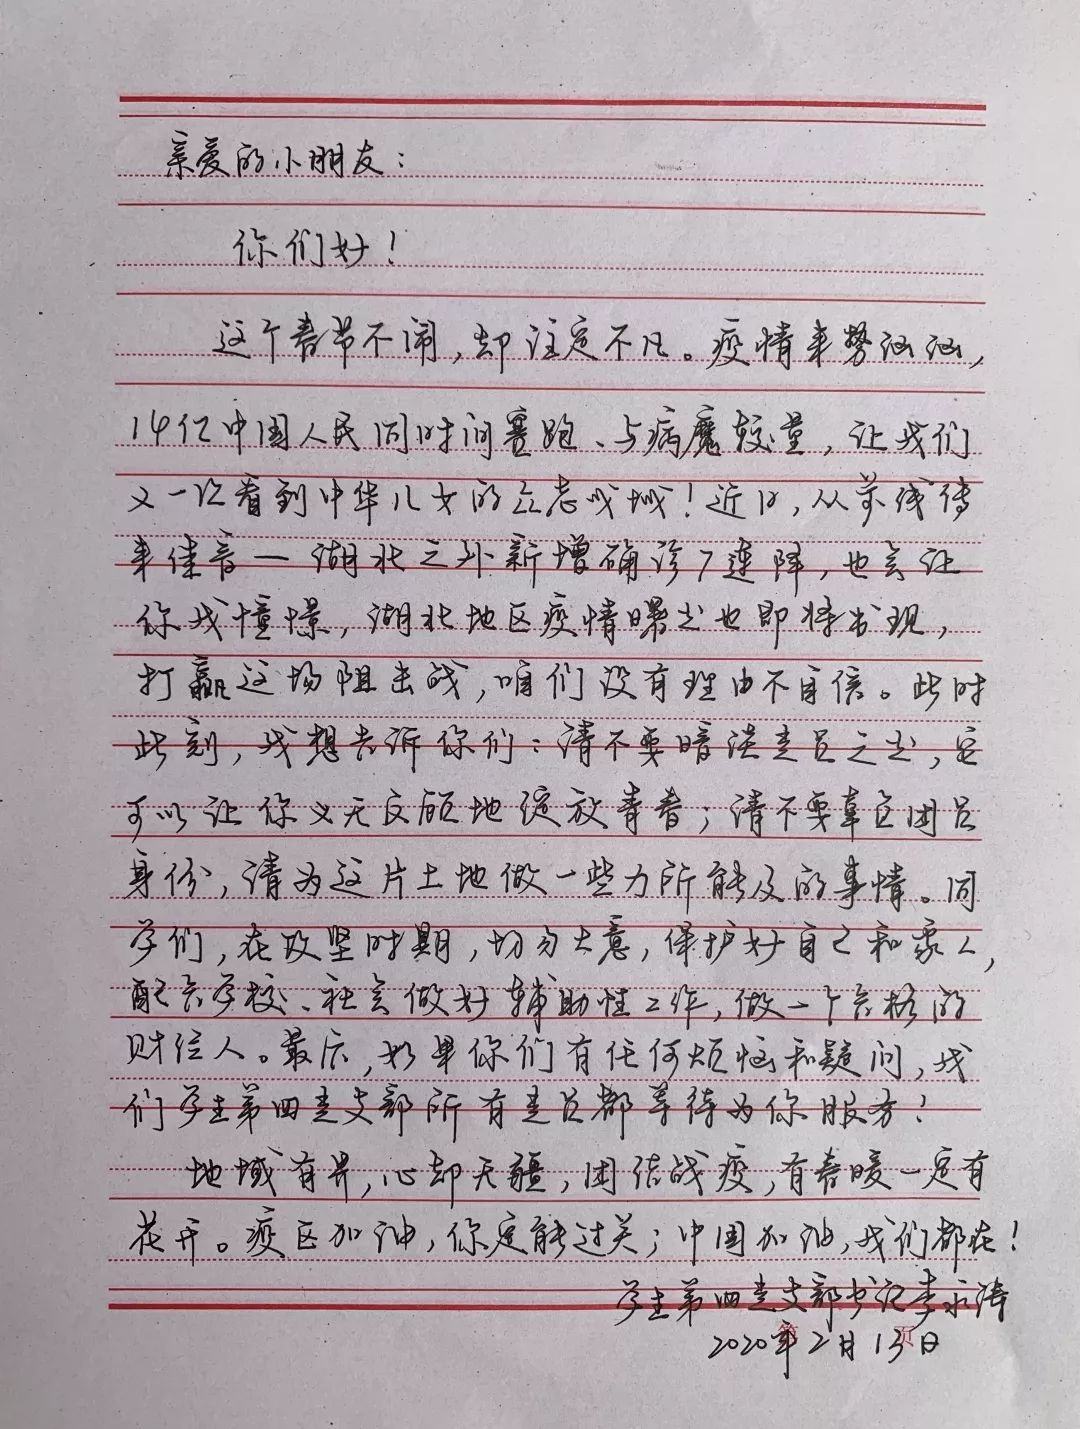 亲爱的小朋友：
你们好！
这个春节不闹，却注定不凡。疫情来势汹汹，
14亿中国人民同时间赛跑、与病魔较量，让我们
又一次看到中华儿女的众志成城！近日，从前线传
来佳音—湖北之外新增确诊7连降，也会让
你我憧憬，湖北地区疫情曙光也即将出现，
打赢这场阻击战，咱们没有理由不自信。此时
此刻，我想告诉你们：请不要暗淡党员之光，它
可以让你义无反顾地绽放青春；请不要辜负团员
身份，请为这片土地做一些力所能及的事情。同
学们，在攻坚时期，切勿大意，保护好自己和家人，
配合学校、社会做好辅助性工作，做一个合格的
财经人。最后，如果你们有任何烦恼和疑问，我
们学生第四党支部所有党员都等待为你服务！
地域有界，心却无疆，团结战疫，有春暖一定有
花开。疫区加油，你定能过关；中国加油，我们都在！
学生第四党支部书记李永涛
2020年2月13日
第 页